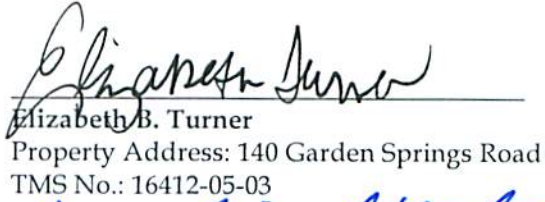 Elizabeth Turner
Elizabeth B. Turner
Property Address: 140 Garden Springs Road
TMS No.: 16412-05-03